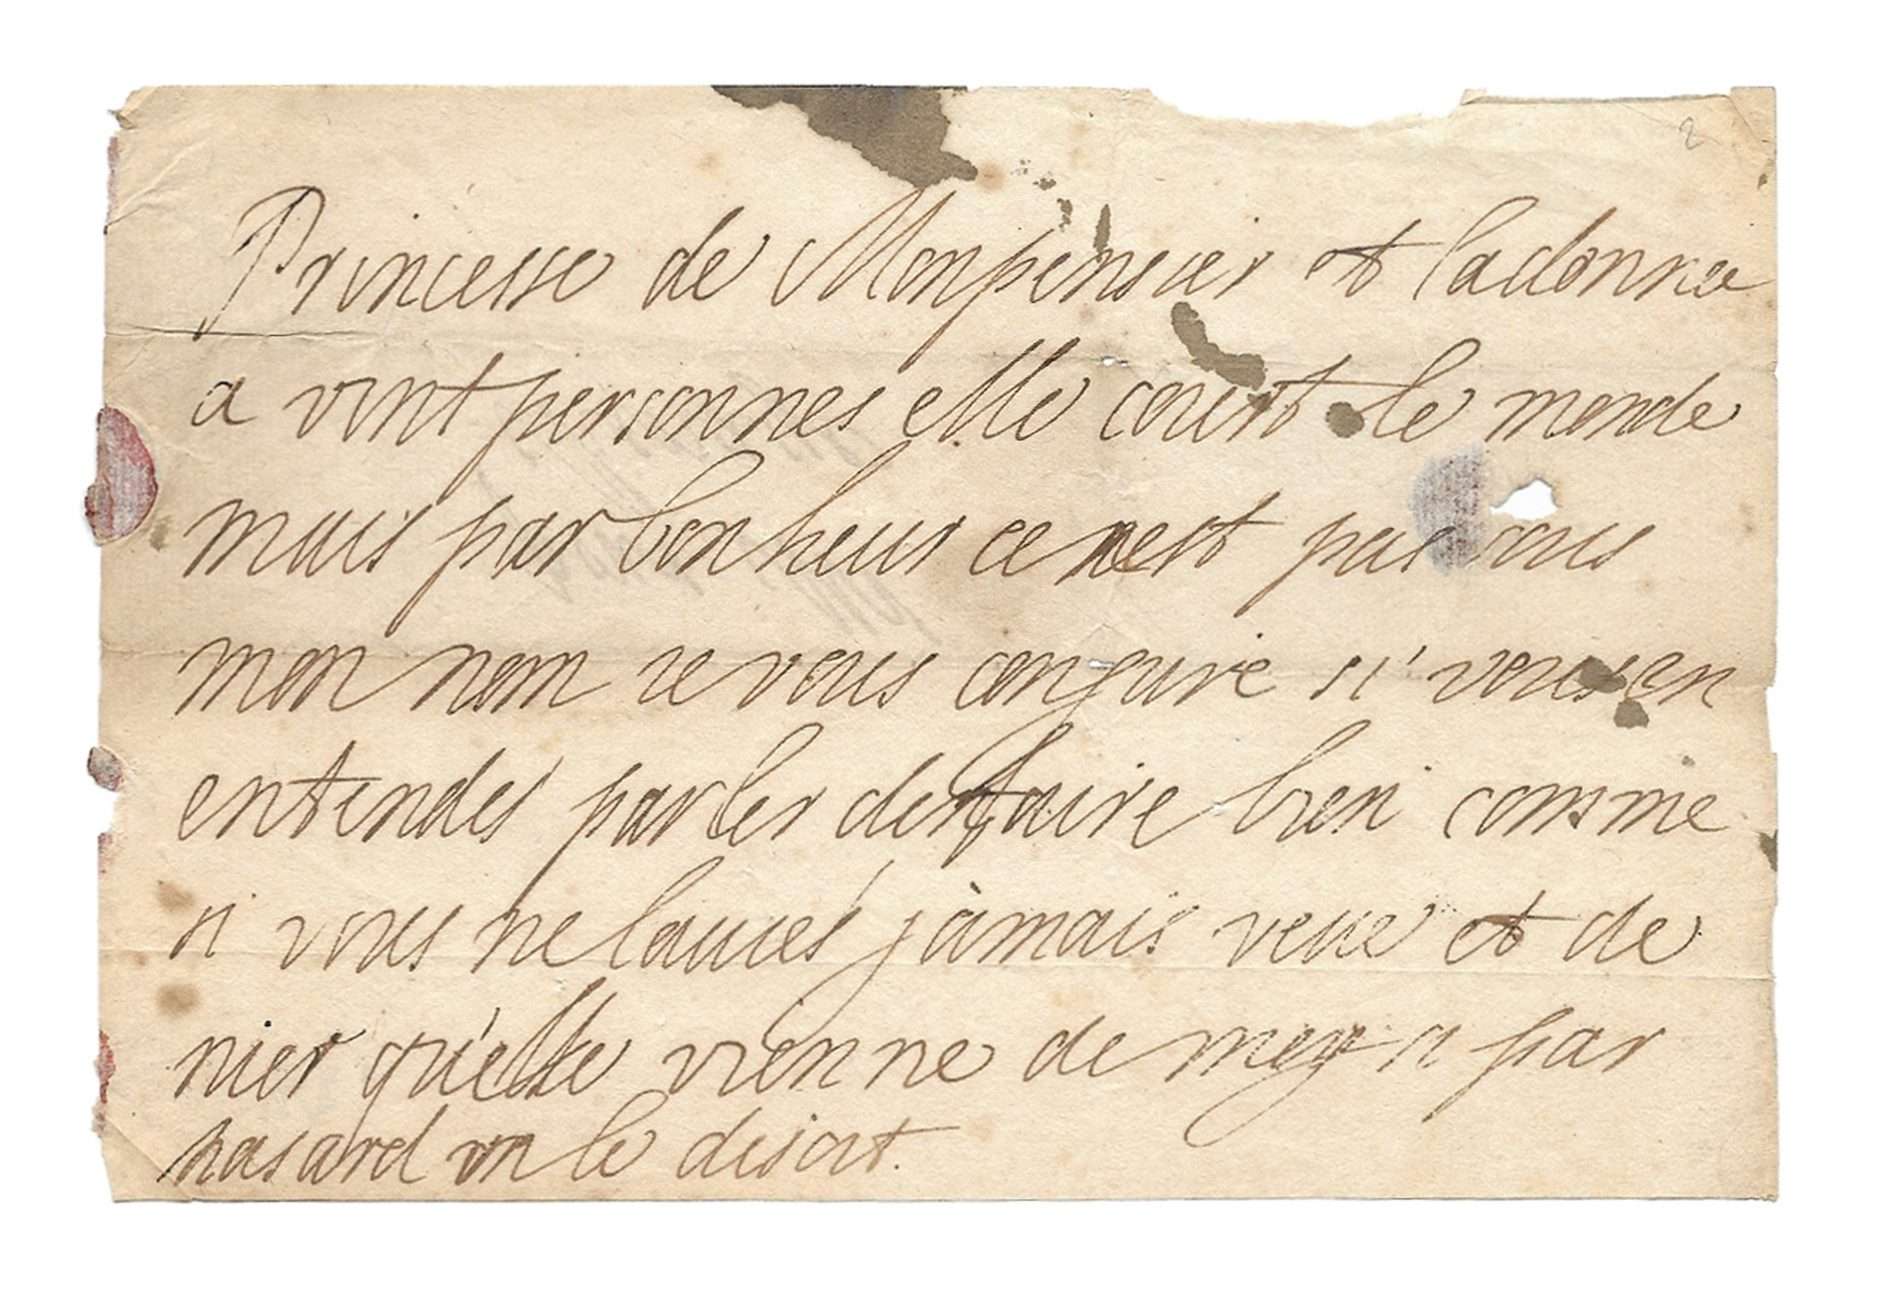 2
Princesse de Monpensier et ladonnee
a vint personnes elle court le monde
mais par bonheur ce nest pas sous
mon nom ie vous congure si vous en
entendes parler den faire bien comme
si vous ne lauies jamais veue et de
nier qu'elle vienne de moy si par
hasard on le disoit.